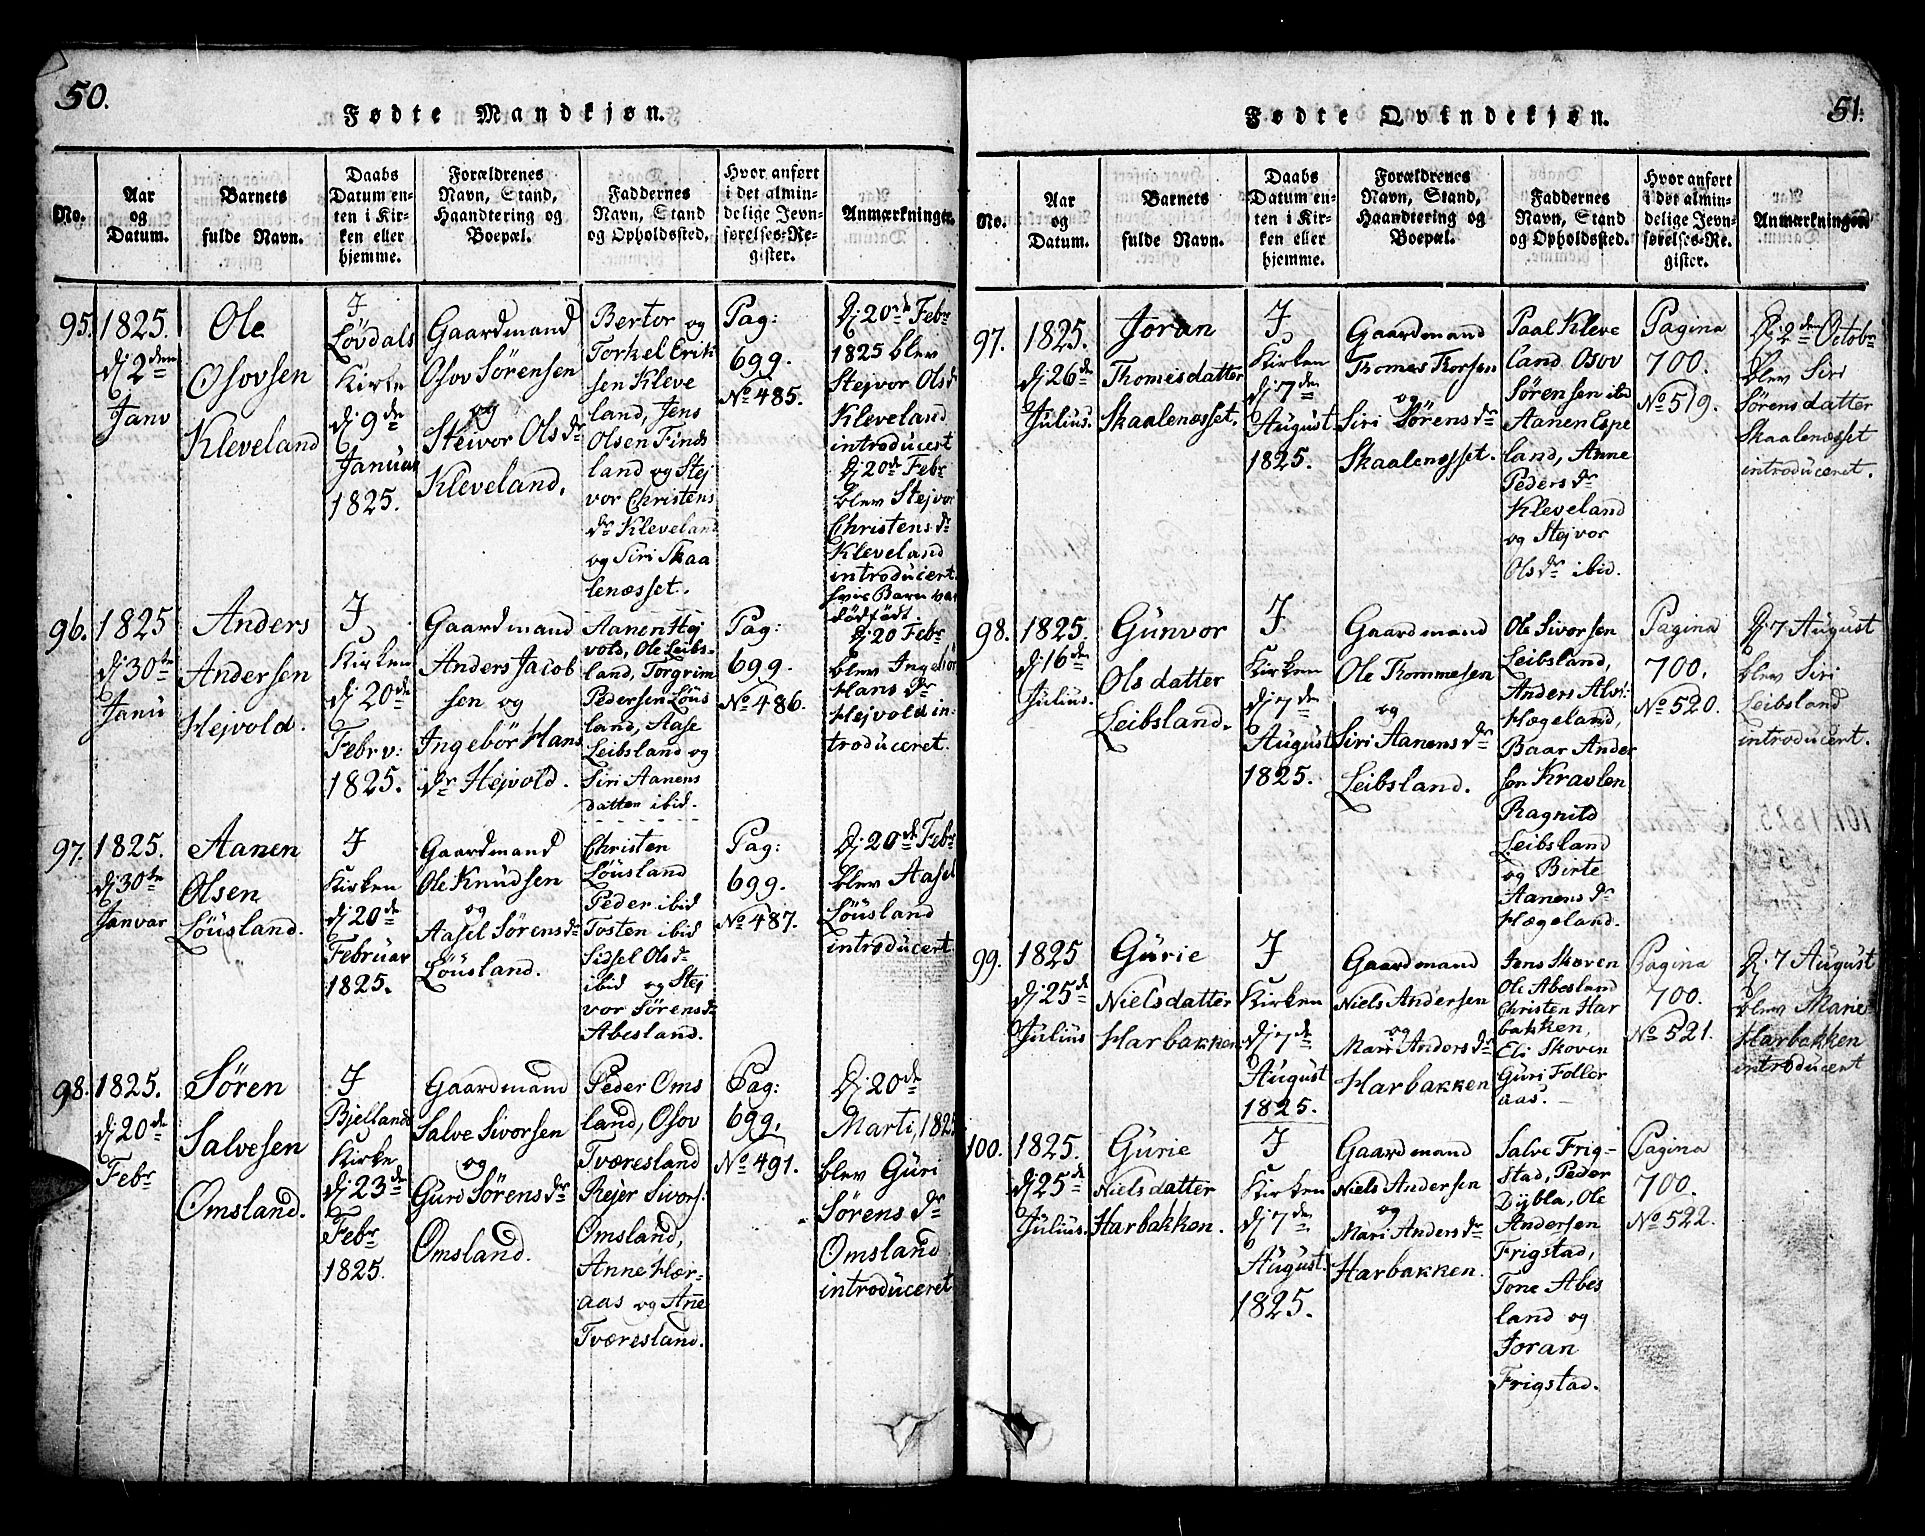 50.
Fødte Mandkjøn.
No.
Aar
og
Datum.
Barnets
fulde Navn.
Daabs
Datum en-
ten i Kir-
ken eller
hjemme.
Forældrenes
Navn, Stand,
Haandtering og
Boepæl.
Faddernes
Navn, Stand
og Opholdssted.
Hvor anført
i det almin-
delige Jevn-
førelses-Re-
gister.
Anmærkninger.
95.
1825.
Dj 2den
Janv
Ole
Osovsen
Kleveland
I
Løvdals
Kirke
dj 9de
Januar
1825.
Gaardmand
Osov Sørensen
og
Steivor Olsdr
Kleveland.
Bertor og
Torkel Erik
sen Kleve
land, Jens
Olsen Finds
land og Stej
vor Christens
dr Kleveland
og Siri Skaa
lenæsset.
Pag:
699.
No 485.
Dj 20de Febr
1825 blev
Stejvor Olsdr
Kleveland
introducert
Dj 20de Febr
blev Stejvor
Christensdr
Kleveland
introducert.
hvis Barn var
dødfødt
96.
1825
dj 30te
Janu
Anders
Andersen
Hejvold.
I
Kirken
dj 20de
Febrv:
1825.
Gaardmand
Anders Jacob
sen og
Ingebör Hans
dr Hejvold.
Aanen Hej
vold, Ole Leibs-
land, Torgrim
Pedersen Löus
land, Aase
Leibsland og
Siri Aanens
datter ibid.
Pag:
699.
No 486.
Dj 20 Febr
blev Ingebör
Hans dr
Hejvold in-
troduceret.
97.
1825.
dj 30te
Janvar
Aanen
Olsen
Löusland.
I
Kirken
dj 20de
Februar
1825.
Gaardmand
Ole Knudsen
og
Aasel Sørensdr
Löusland.
Christen
Löusland
Peder ibid
Tosten ibid
Sidsel Olsdr
ibid og Stej
vor Sørensdr
Abesland.
Pag:
699.
No 487.
Dj 20de Febr
blev Aasel
Löusland
introducert.
98.
1825.
dj 20de
Febr
Sören
Salvesen
Omsland.
I
Bjellands
Kirke
dj 23de
Febr
1825.
Gaardmand
Salve Sivorsen
og
Guri Sørensdr
Omsland.
Peder Oms
land, Osov
Tværesland
Rejer Sivors:
Omsland,
Anne Hær-
aas og Ane
Tværesland.
Pag:
699.
No 491.
Dj 20de
Marti, 1825
blev Guri
Sørens dr
Omsland
introduceret
51.
Fødte Qvindekjøn.
No.
Aar
og
Datum.
Barnets
fulde Navn.
Daabs
Datum en-
ten i Kir-
ken eller
hjemme.
Forældrenes
Navn, Stand,
Haandtering og
Boepæl.
Faddernes
Navn, Stand
og Opholdssted.
Hvor anført
i det almin-
delige Jevn-
førelses-Re-
gister.
Anmærkninger
97.
1825.
dj 26de
Julius.
Joran
Thomesdatter
Skaalenæsset.
I
Kirken
dj 7de
August
1825.
Gaardmand
Thomes Torsen
og
Siri Sørensdr
Skaalenæsset.
Paal Kleve
land Osov
Sørensen ibd
Aanen Espe
land, Anne
Pedersdr
Kleveland
og Stejvor
Olsdr ibid.
Pagina
700.
No 519.
Dj 2den Octobr
blev Siri
Sörensdatter
Skaalenæsset
introduceret.
98.
1825.
dj 16de
Julius.
Gunvor
Olsdatter
Leibsland.
I
Kirken
dj 7de
August
1825.
Gaardmand
Ole Thommesen
og
Siri Aanensdr
Leibsland.
Ole Sivorsen
Leibsland,
Anders Alvi
Hægeland,
Baar Ander
sen Kravlen
Ragnild
Leibsland
og Birte
Aanensdr
Hægeland.
Pagina
700.
No 520.
Dj 7 August
blev Siri
Leibsland
introducert.
99.
1825
dj 25de
Julius
Gürie
Nielsdatter
Harbakken
I
Kirken
dj 7de
August
1825.
Gaardmand
Niels Andersen
og
Mari Andersdr
Harbakken
Jens Skoven
Ole Abesland
Christen Har
bakken,
Eli Skoven
Guri Foller
aas.
Pagina
700.
No 521.
Dj 7 August
blev Marie
Harbakken
introducert
100.
1825.
dj 25de
Julius.
Gürie
Nielsdatter
Harbakken.
I
Kirken
dj 7de
August
1825.
Gaardmand
Niels Andersen
og
Mari Andersdr
Harbakken.
Salve Frig-
stad, Peder
Dybla, Ole
Andersen
Frigstad,
Tone Abes
land og
Joran
Frigstad.
Pagina
700.
No 522.